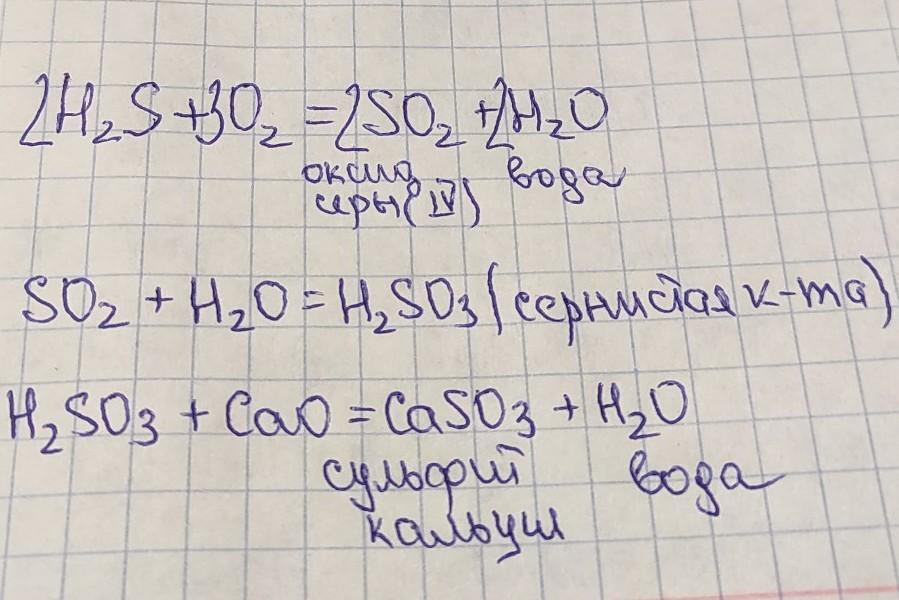 2H₂S + 3O₂ = 2SO₂ + 2H₂O
оксид вода
серы (IV)
SO₂ + H₂O = H₂SO₃ (сернистая к-та)
H₂SO₃ + CaO = CaSO₃ + H₂O
сульфит вода
кальция